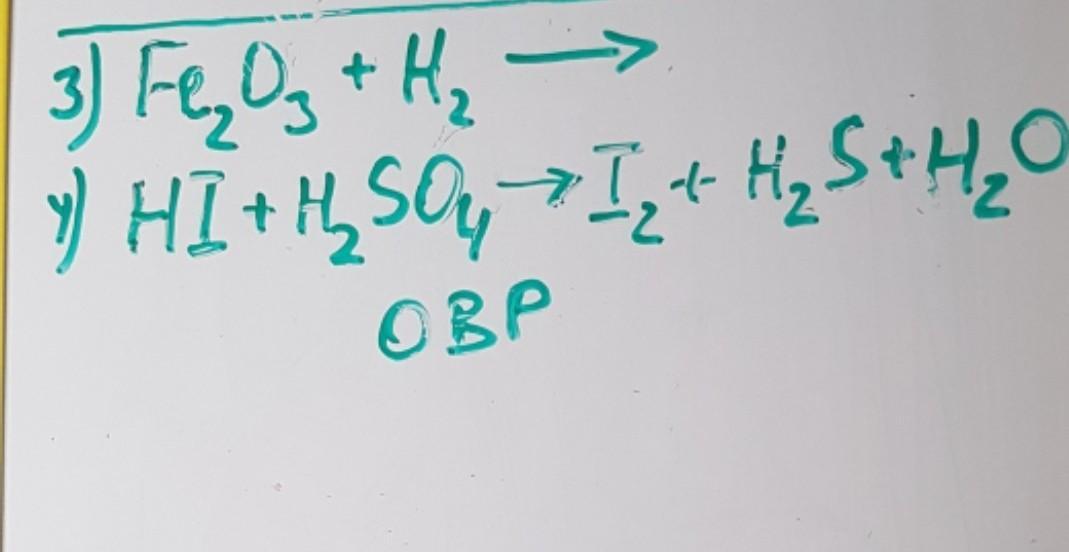 3) Fe₂O₃ + H₂ →
4) HI + H₂SO₄ → I₂ + H₂S + H₂O
ОВР